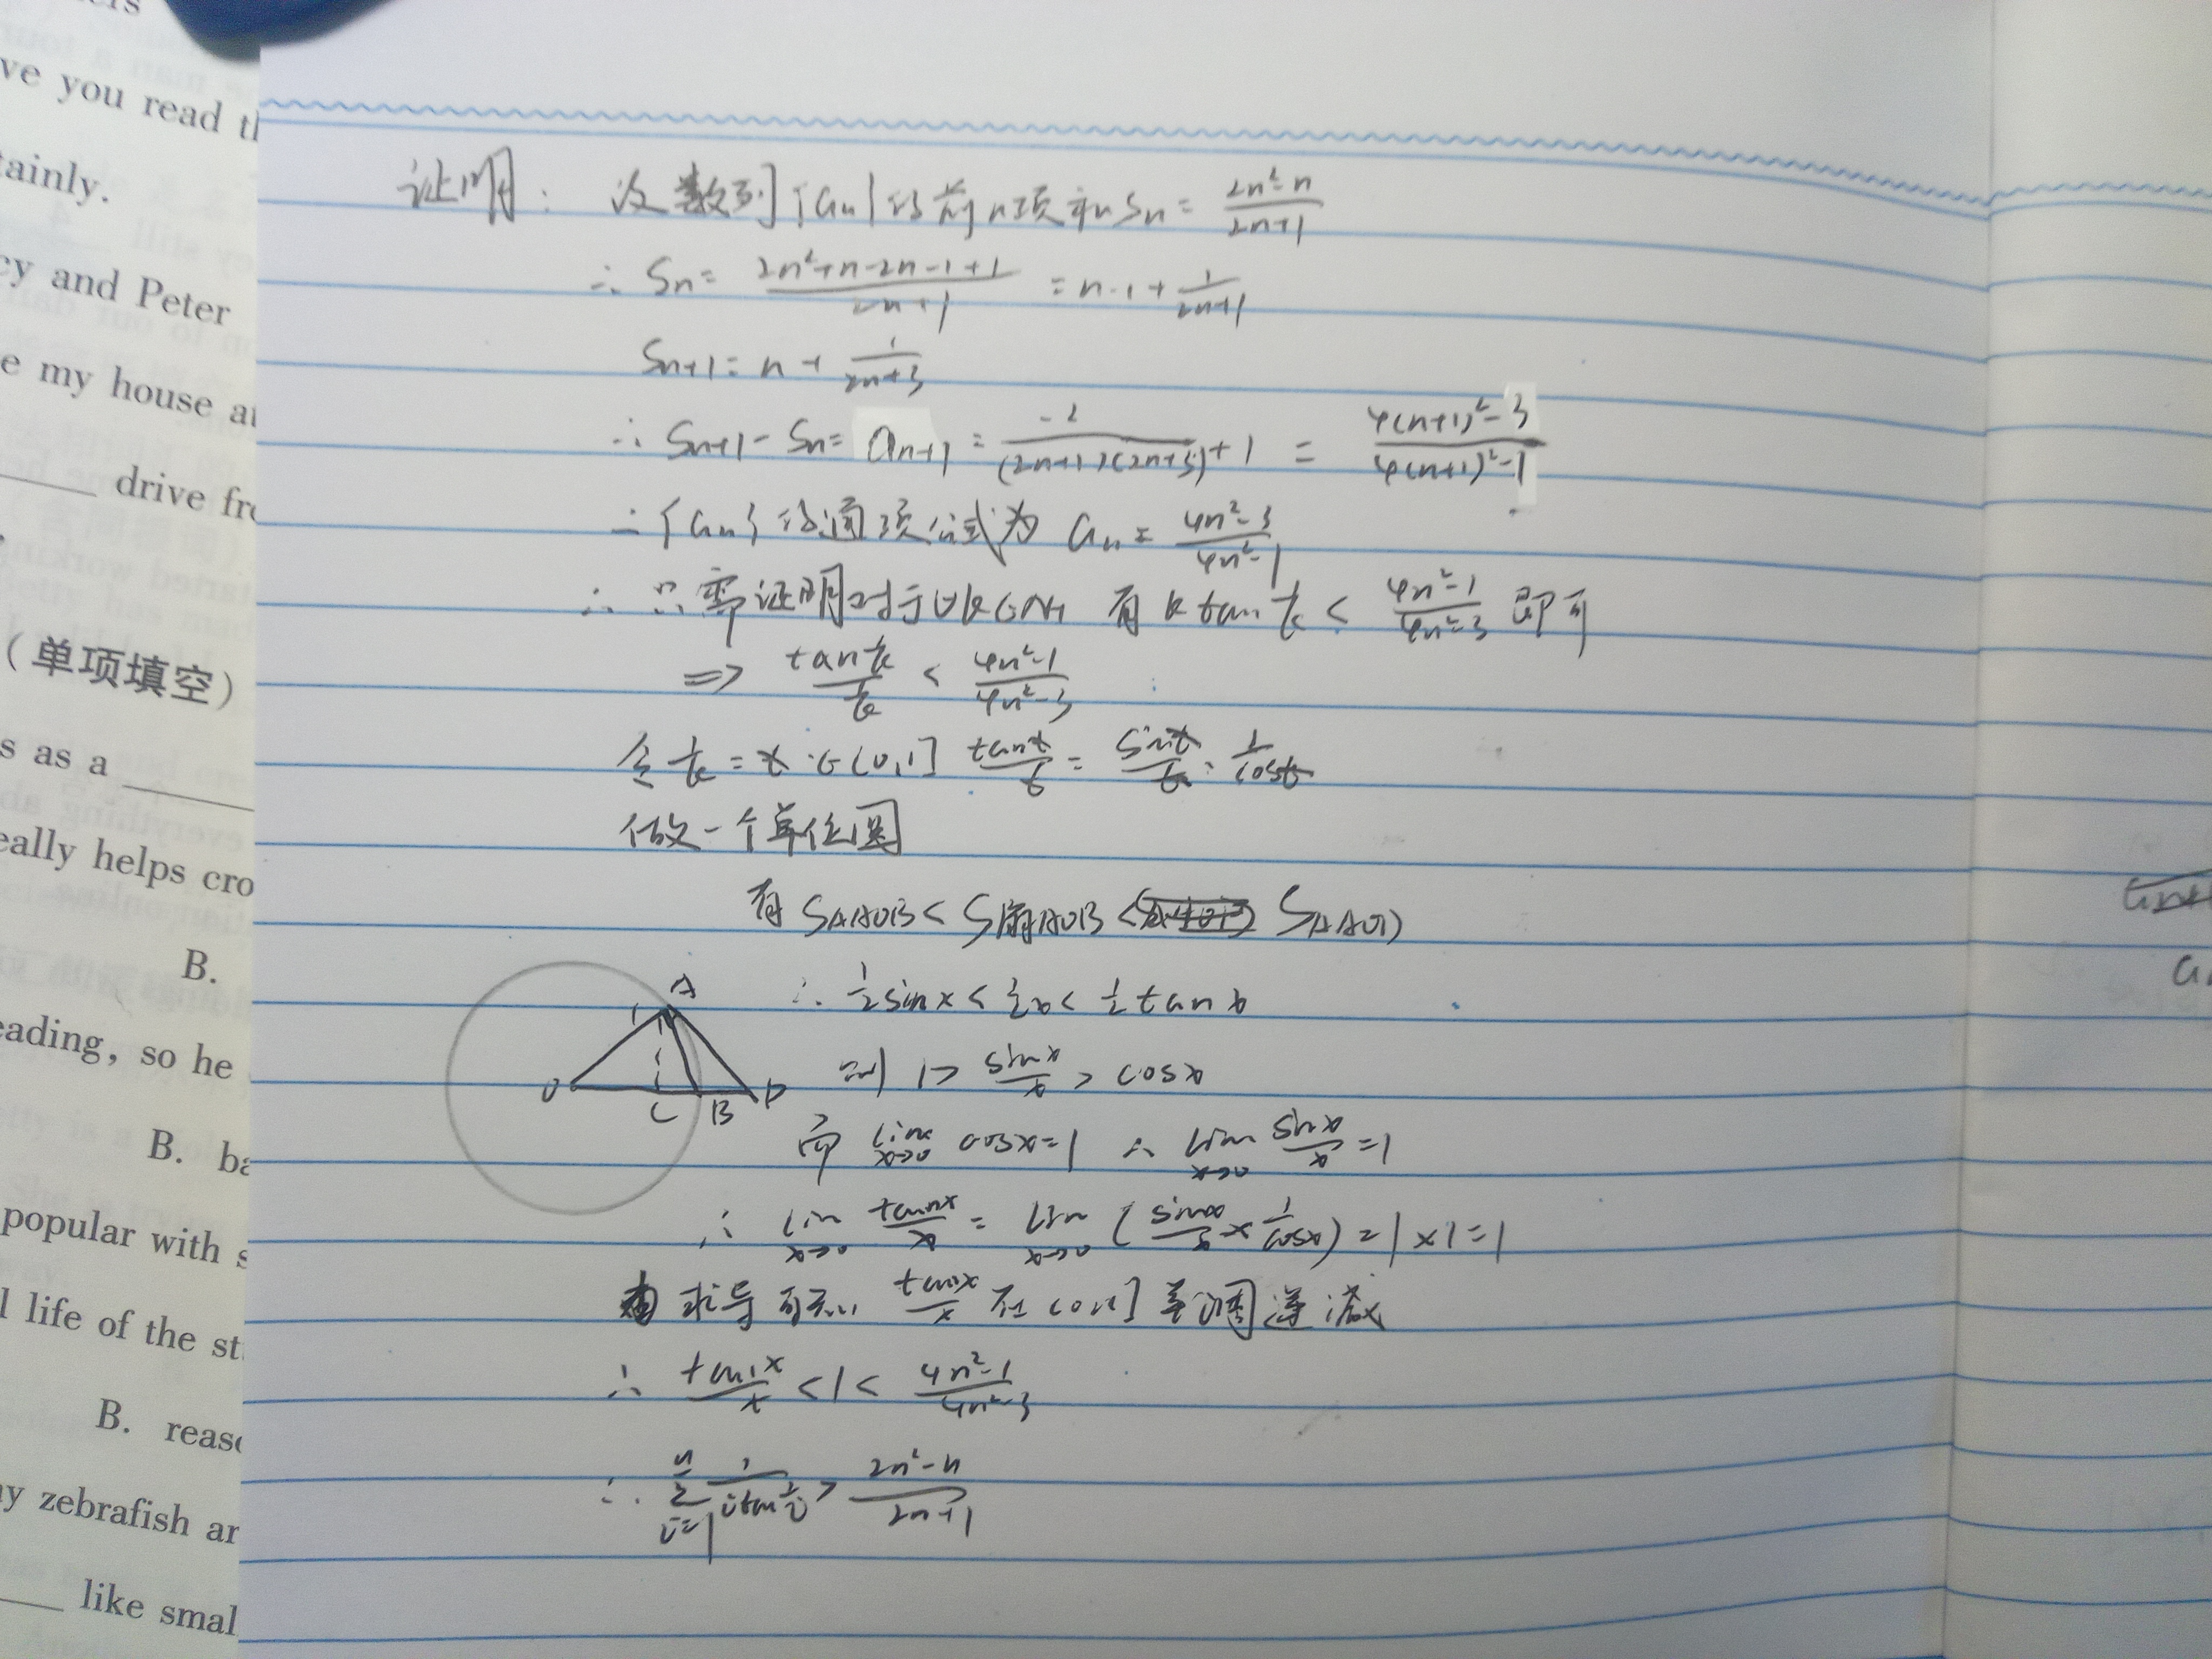 ve you read th
tainly.
cy and Peter
e my house at
drive fro
(单项填空)
s as a
eally helps cro
B.
eading, so he
B. ba
popular with s
l life of the st
B. reaso
y zebrafish ar
like smal
证明: 设数列{an}的前n项和Sn = (2n²-n)/(2n+1)
∴ Sn = (2n²+n-2n-1+1)/(2n+1) = n-1+1/(2n+1)
Sn+1 = n + 1/(2n+3)
∴ Sn+1 - Sn = an+1 = -2/((2n+1)(2n+3)) + 1 = (4(n+1)²-3)/(4(n+1)²-1)
∴ {an}的通项公式为 an = (4n²-3)/(4n²-1)
∴ 只需证明对于∀k∈N+ 有 k tan 1/k < (4n²-1)/(4n²-3) 即可
⇒ (tan 1/k)/(1/k) < (4n²-1)/(4n²-3)
令 1/k = x ∈(0,1] tanx/x = sinx/x · 1/cosx
做一个单位圆
有 S△AOB < S扇AOB < S△AOD
A
1
O C B D
∴ ½sinx < ½x < ½tanx
则 1 > sinx/x > cosx
而 lim x→0 cosx=1 ∴ lim x→0 sinx/x =1
∴ lim x→0 tanx/x = lim x→0 (sinx/x × 1/cosx) = 1×1=1
由求导可知 tanx/x 在(0,1]单调递减
∴ tanx/x < 1 < (4n²-1)/(4n²-3)
∴ n Σ i=1 1/(i tan 1/i) > (2n²-n)/(2n+1)